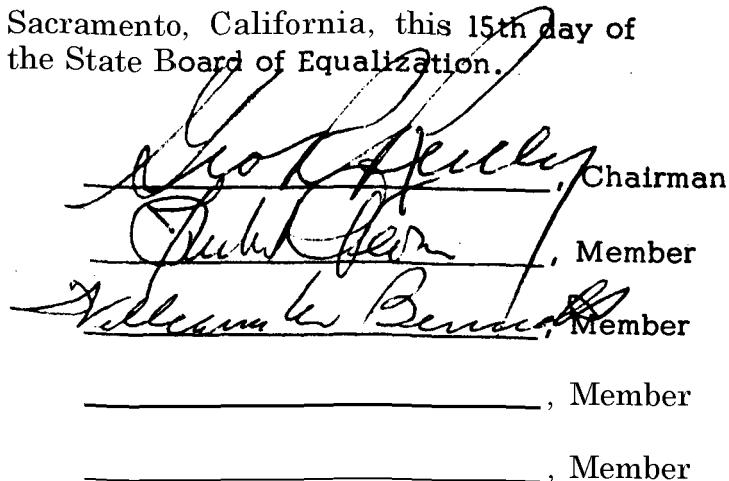 Sacramento, California, this 15th day of
the State Board of Equalization.
Geo R Reilly, Chairman
, Member
William M Bennett, Member
, Member
, Member